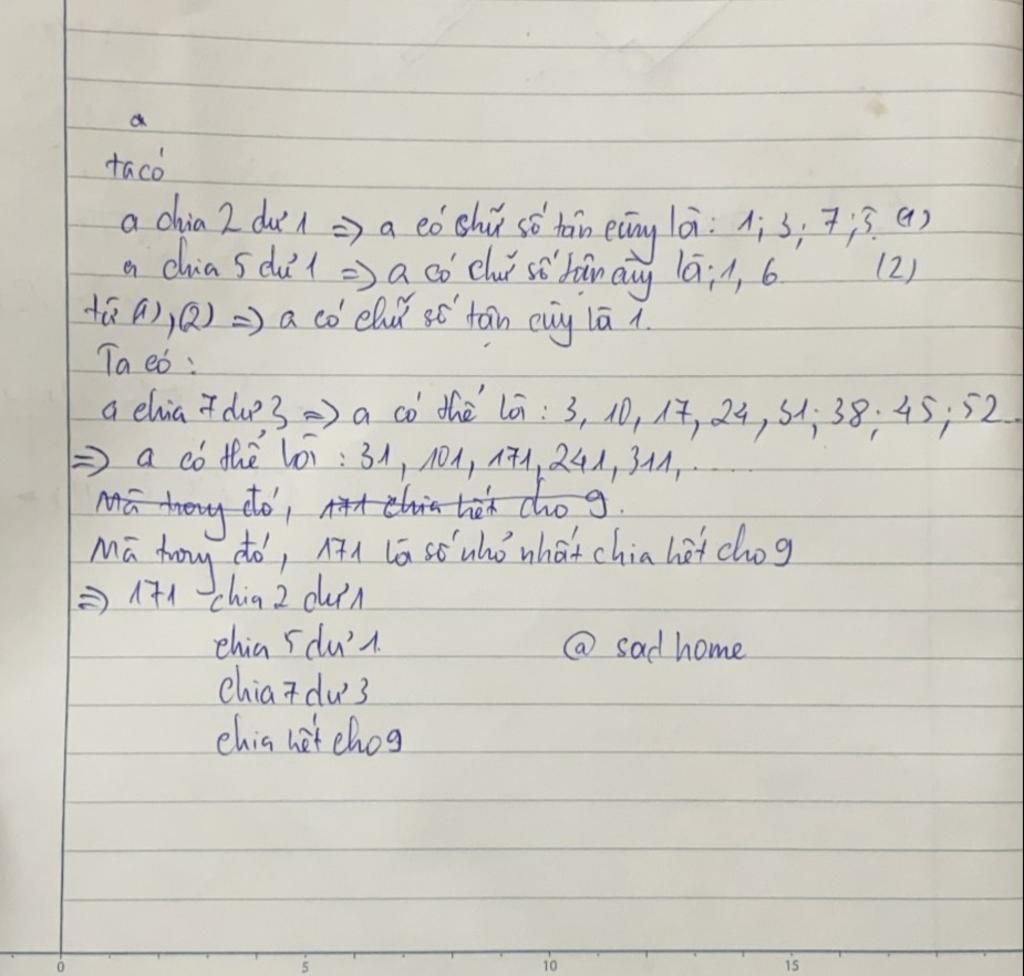 a
ta có
a chia 2 dư 1 => a có chữ số tận cùng là: 1; 3; 7; 5. (1)
a chia 5 dư 1 => a có chữ số tận cùng là; 1, 6 (2)
từ (1), (2) => a có chữ số tận cùng là 1.
Ta có:
a chia 7 dư 3 => a có thể là: 3, 10, 17, 24, 31; 38; 45; 52...
=> a có thể là: 31, 101, 171, 241, 311, .....
Mà trong đó, 171 chia hết cho 9.
Mà trong đó, 171 là số nhỏ nhất chia hết cho 9
=> 171 chia 2 dư 1
chia 5 dư 1. @ sad home
chia 7 dư 3
chia hết cho 9
0 5 10 15